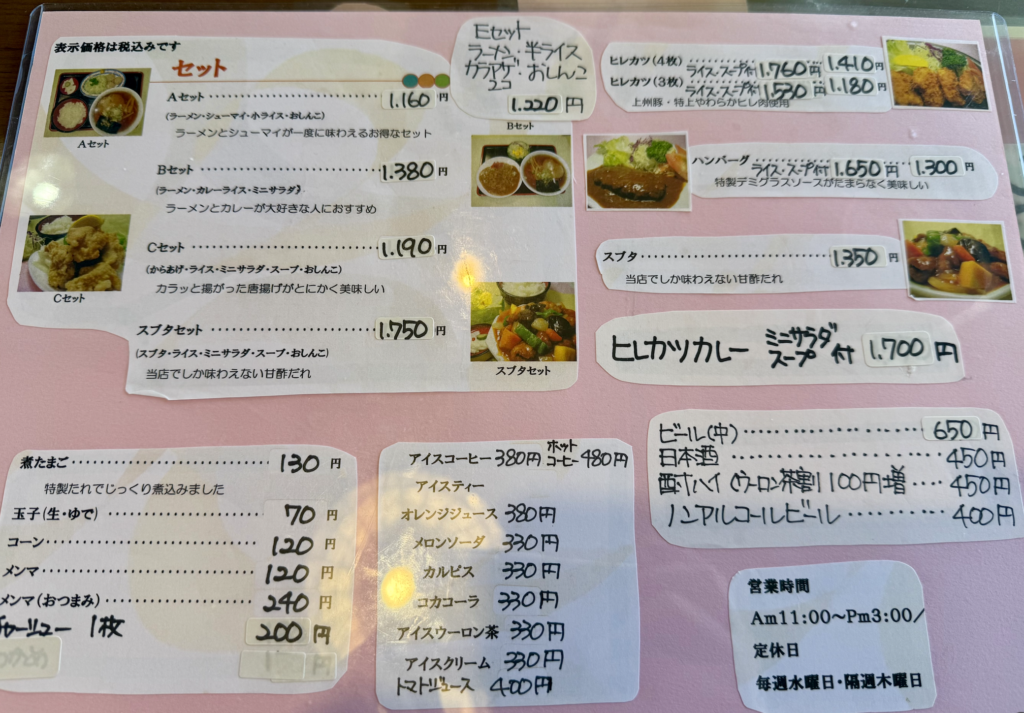 表示価格は税込みです
セット
Aセット ・・・ 1.160 円
(ラーメン・シューマイ・小ライス・おしんこ)
ラーメンとシューマイが一度に味わえるお得なセット
Aセット
Bセット ・・・ 1.380 円
(ラーメン・カレーライス・ミニサラダ)
ラーメンとカレーが大好きな人におすすめ
Bセット
Cセット ・・・ 1.190 円
(からあげ・ライス・ミニサラダ・スープ・おしんこ)
カラッと揚がった唐揚げがとにかく美味しい
Cセット
スブタセット ・・・ 1.750 円
(スブタ・ライス・ミニサラダ・スープ・おしんこ)
当店でしか味わえない甘酢だれ
スブタセット
Eセット
ラーメン・半ライス
カラアゲ・おしんこ
2コ
1.220 円
ヒレカツ(4枚) ライス・スープ付 1.760円 1.410円
ヒレカツ(3枚) ライス・スープ付 1.530円 1.180円
上州豚・特上やわらかヒレ肉使用
ハンバーグ ・・・ ライス・スープ付 1.650円 1.300円
特製デミグラスソースがたまらなく美味しい
スブタ ・・・ 1.350 円
当店でしか味わえない甘酢だれ
ヒレカツカレー ミニサラダ スープ 付 1.700円
煮たまご ・・・ 130 円
特製たれでじっくり煮込みました
玉子(生・ゆで) ・・・ 70 円
コーン ・・・ 120 円
メンマ ・・・ 120 円
メンマ(おつまみ) ・・・ 240 円
チャーシュー 1枚 200 円
アイスコーヒー 380円 ホットコーヒー 480円
アイスティー
オレンジジュース 380円
メロンソーダ 330円
カルピス 330円
コカコーラ 330円
アイスウーロン茶 330円
アイスクリーム 330円
トマトジュース 400円
ビール(中) ・・・ 650円
日本酒 ・・・ 450円
酎ハイ(ウーロン茶割100円増 ・・・ 450円
ノンアルコールビール ・・・ 400円
営業時間
Am11:00～Pm3:00/
定休日
毎週水曜日・隔週木曜日